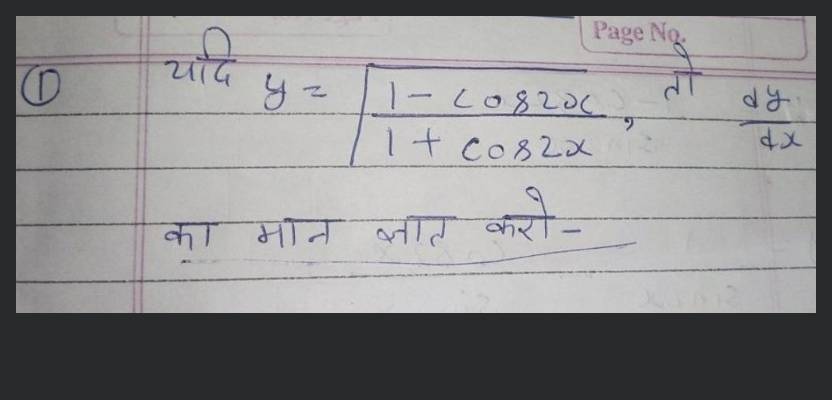 Page No.
① यदि y = √(1 - cos2x / 1 + cos2x), तो dy/dx
का मान ज्ञात करो-